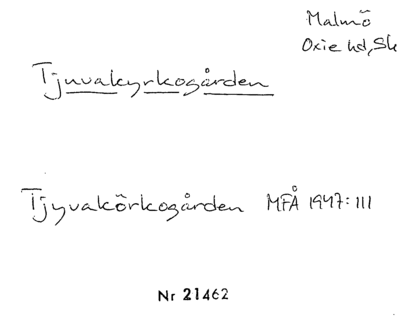 Malmö
Oxie hd, Sk
Tjuvakyrkogården
Tjyvakörkogården MFÅ 1947:III
Nr 21462